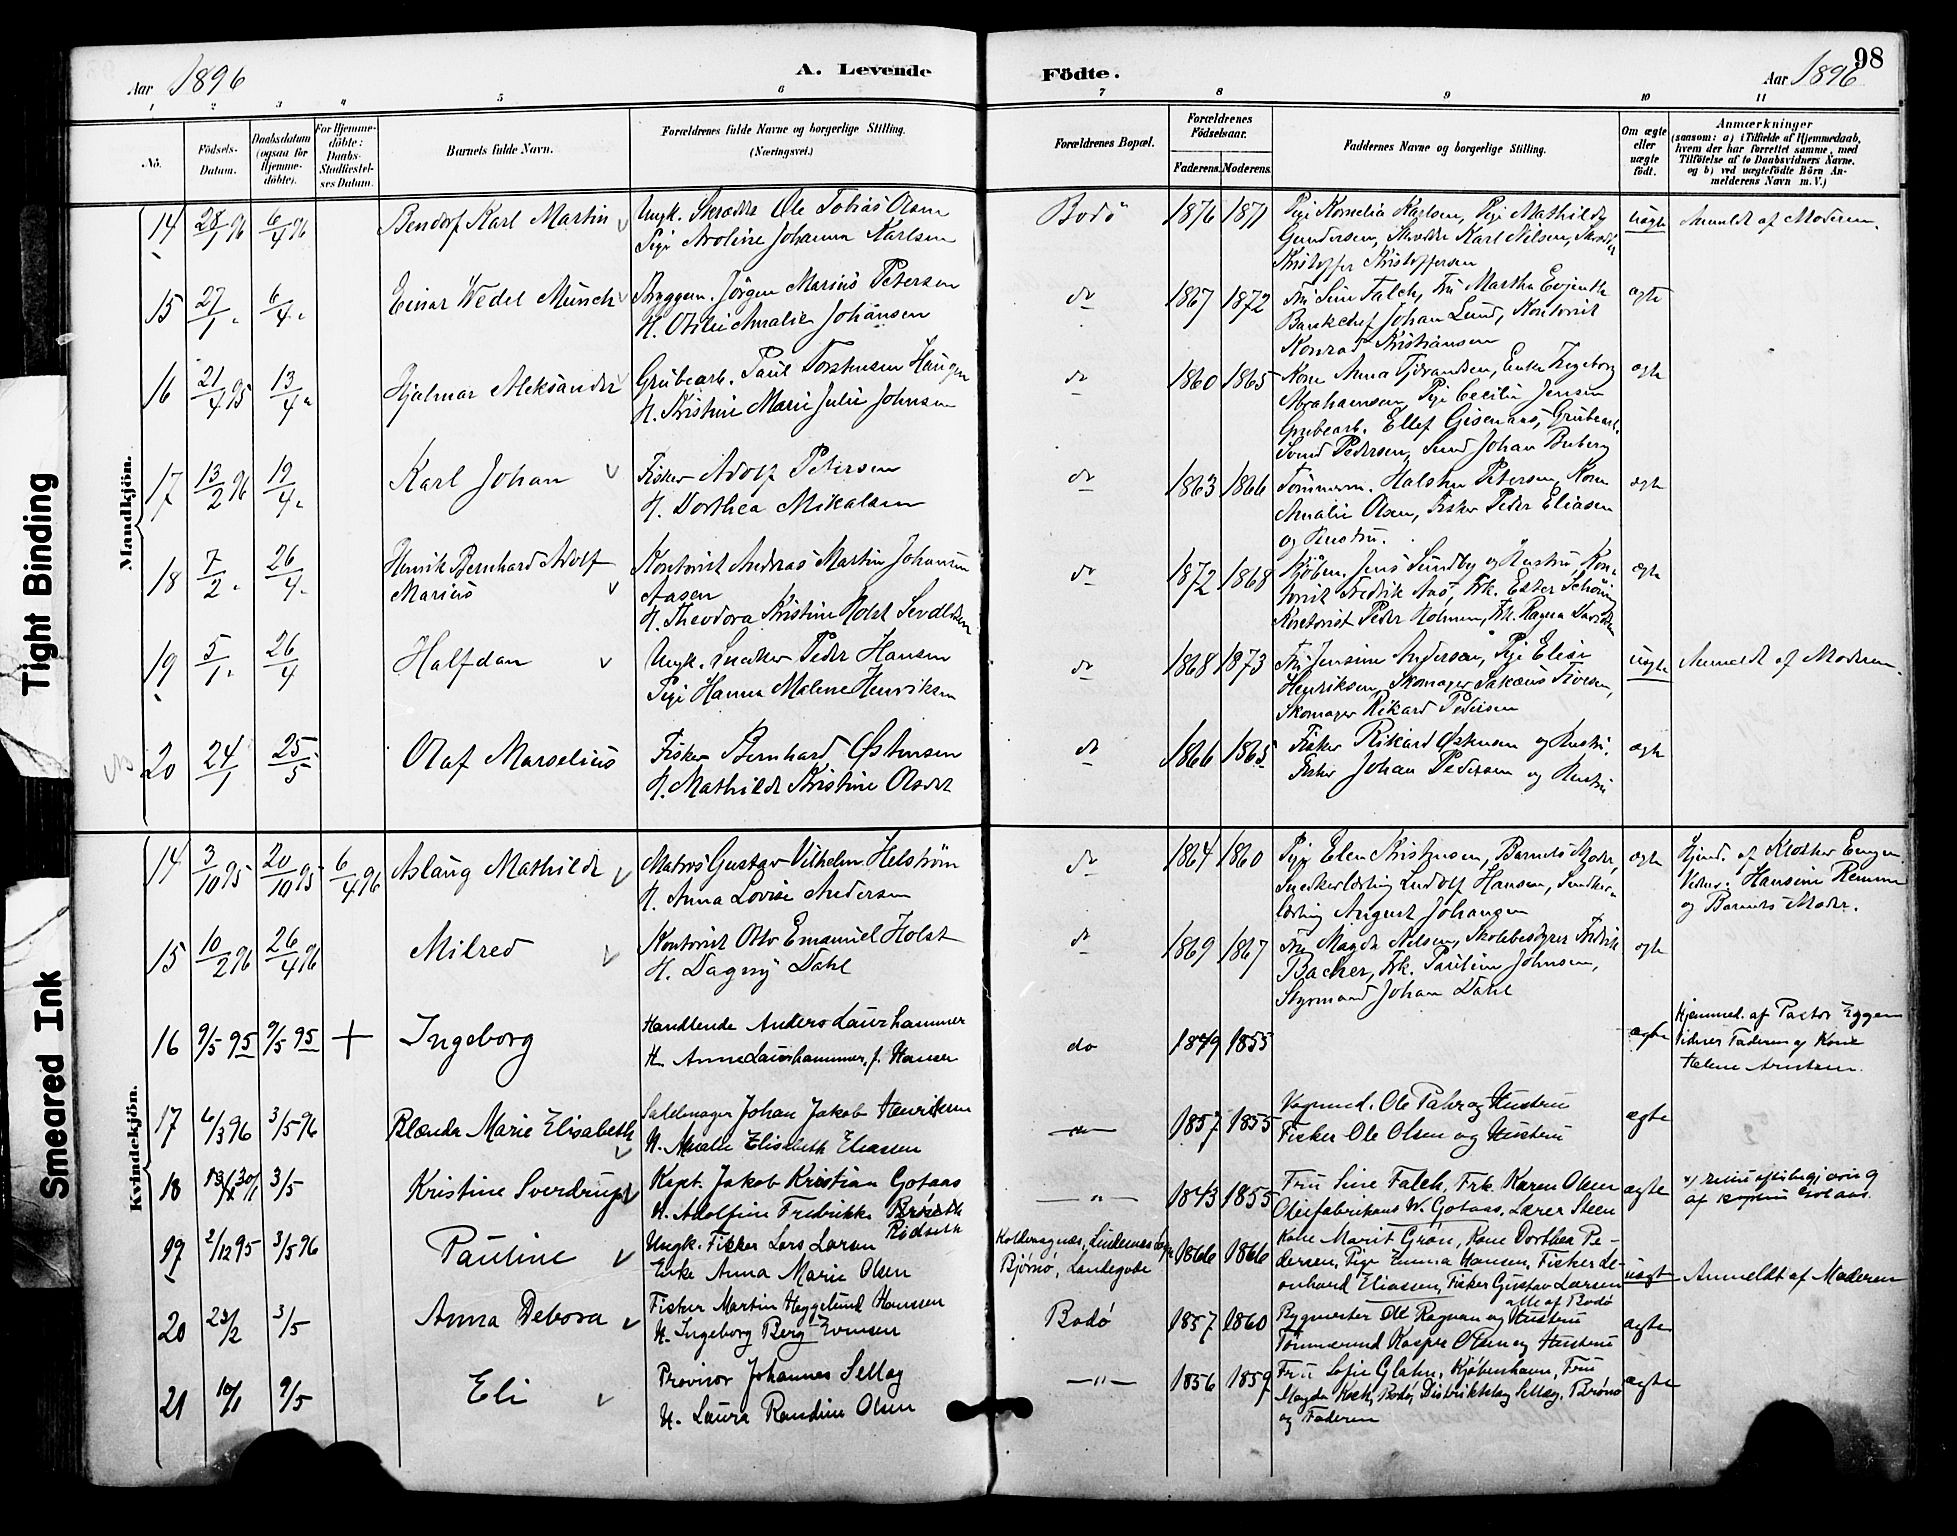 Aar 1896
A. Levende Födte.
98
Aar 1896
1 2 3 4 5 6 7 8 9 10 11
No.
Födsels-
Datum.
Daabsdatum
(ogsaa for
Hjemme-
döbte).
For Hjemme-
döbte:
Daabs-
Stadfæstel-
ses Datum.
Barnets fulde Navn.
Forældrenes fulde Navne og borgerlige Stilling.
(Næringsvei.)
Forældrenes Bopæl.
Forældrenes
Födselsaar.
Faderens. Moderens.
Faddernes Navne og borgerlige Stilling.
Om ægte
eller
uægte
födt.
Anmærkninger
(saasom: a) i Tilfælde af Hjemmedaab,
hvem der har forrettet samme, med
Tilföielse af to Daabsvidners Navne.
og b) ved uægtefödte Börn An-
melderens Navn m. V.)
Mandkjön.
14 28/1 96 6/4 96 Bendorf Karl Martin Ungk. Skrædder Ole Tobias Olsen Bodö 1876 1871 Pige Kornelia Karlsen, Pige Mathilde uægte Anmeldt af Moderen.
Pige Aroline Johanna Karlsen Gundersen, Skrædder Karl Nilsen,
Kristoffer Kristoffersen
15 27/1 " 6/4 " Einar Wedel Münch Bryggem. Jörgen Marius Petersen do 1867 1872 Fru Sine Falch, Fru Martha ægte
H. Otilie Amalie Johansen Bankchef Johan Lund, Kontorist
Konrad Kristiansen
16 21/4 95 13/4 " Hjalmar Aleksander Grubearb. Paul Torstensen Haugen do 1860 1865 Kone Anna Tjerandsen, Enke Ingeborg ægte
H. Kristine Marie Julie Johnsen Abrahamsen, Pige Cecilie Jensen
Grubearb. Ellef Gisemaas, Grubearb.
Svend Pedersen, Johan
17 13/2 96 19/4 " Karl Johan Fisker Adolf Petersen do 1863 1866 Tömmerm. Halsten Petersen, Kone ægte
H. Dorthea Mikalsen Amalie Olsen, Fisker Peder Eliasen
og Hustru.
18 7/2 " 26/4 " Henrik Bernhard Adolf Kontorist Andreas Martin Johansen do 1872 1868 Kjöbm. Jens Sundby og Hustru, Kon- ægte
Marius Aasen torist Fredrik Aas, Frk. Ester Schöning
H. Theodora Kristine Holst Kontorist Peder Holmen, Frk. Ragna Davidsen
19 5/1 " 26/4 Halfdan Ungk. Snedker Peder Hansen do 1868 1873 Fru Jensine Andersen, Pige Elise uægte Anmeldt af Moderen.
Pige Hanna Malene Henriksen Henriksen, Skomager
Skomager Rikard Pedersen
20 24/1 25/5 Olaf Marselius Fisker Bernhard Östensen do 1866 1865 Fisker Rikard Östensen og Hustru.
ægte
H. Mathilde Kristine Olsdt Fisker Johan Pedersen og Hustru
Kvindekjön.
14 3/10 95 20/10 95 6/4 96 Aslaug Mathilde Matros Gustav Vilhelm Helström do 1864 1860 Pige Elen Kristensen, Barnets Moder, ægte Hjemd. af Klokker
H. Anna Lovise Andersen Snedkerlærling Ludolf Hansen, Snedker- Vidner. Hansine
lærling August Johansen og Barnets Moder.
15 10/2 96 26/4 96 Milred Kontorist Otto Emanuel Holst do 1869 1867 Fru Magda Nilsen, Skolebestyrer Fredrik ægte
H. Dagny Dahl Bacher, Frk. Pauline Johnsen,
Styrmand Johan Dahl
16 9/5 95 9/5 95 + Ingeborg Handlende Anders Laurhammer do 1849 1855 ægte Hjemmed. af Pastor Eggen
H. Anne Laurhammer, f. Hansen Vidner Faderen og Kone
Helene Arntsen.
17 6/3 96 3/5 96 Blænda Marie Elisabeth Sadelmager Johan Jakob Henriksen 1857 1855 Vognmd. Ole Pahr og Hustru ægte
H. Amalie Elisabeth Eliassen Fisker Ole Olsen og Hustru
18 3/5 Kristine Sverdrup Kapt. Jakob Kristian Gotaas — " — 1843 1855 Fru Sine Falch, Frk. Karen Olsen ægte
H. Adolfine Fredrikke Rödseth Oliefabrikant W. Gotaas, Lærer Steen
19 2/12 95 3/5 96 Pauline Ungk. Fisker Lars Larsen 1866 1866 Kone Marit Grön, Kone Dorthea Pe- uægte Anmeldt af Moderen
Enke Anna Marie Olsen Björnö, Landegode dersen, Pige Emma Hansen, Fisker Le-
onhard Eliassen, Fisker Gustav Larsen
alle af Bodö
20 23/2 3/5 Anna Debora Fisker Martin Heggelund Hanssen Bodö 1857 1860 Bygmester Ole Rognan og Hustru ægte
H. Ingeborg Berg Evensen Tömmermd Kasper Olsen og Hustru
21 10/1 9/5 Eli Provisor Johannes Selläg — " — 1856 1859 Fru Sofie Glahn, Kjöbenhavn, Fru ægte
H. Laura Randine Olsen Magda Koch, Bodö, Distriktslæg Selläg, Brönö
og Faderen
Tight Binding
Smeared Ink